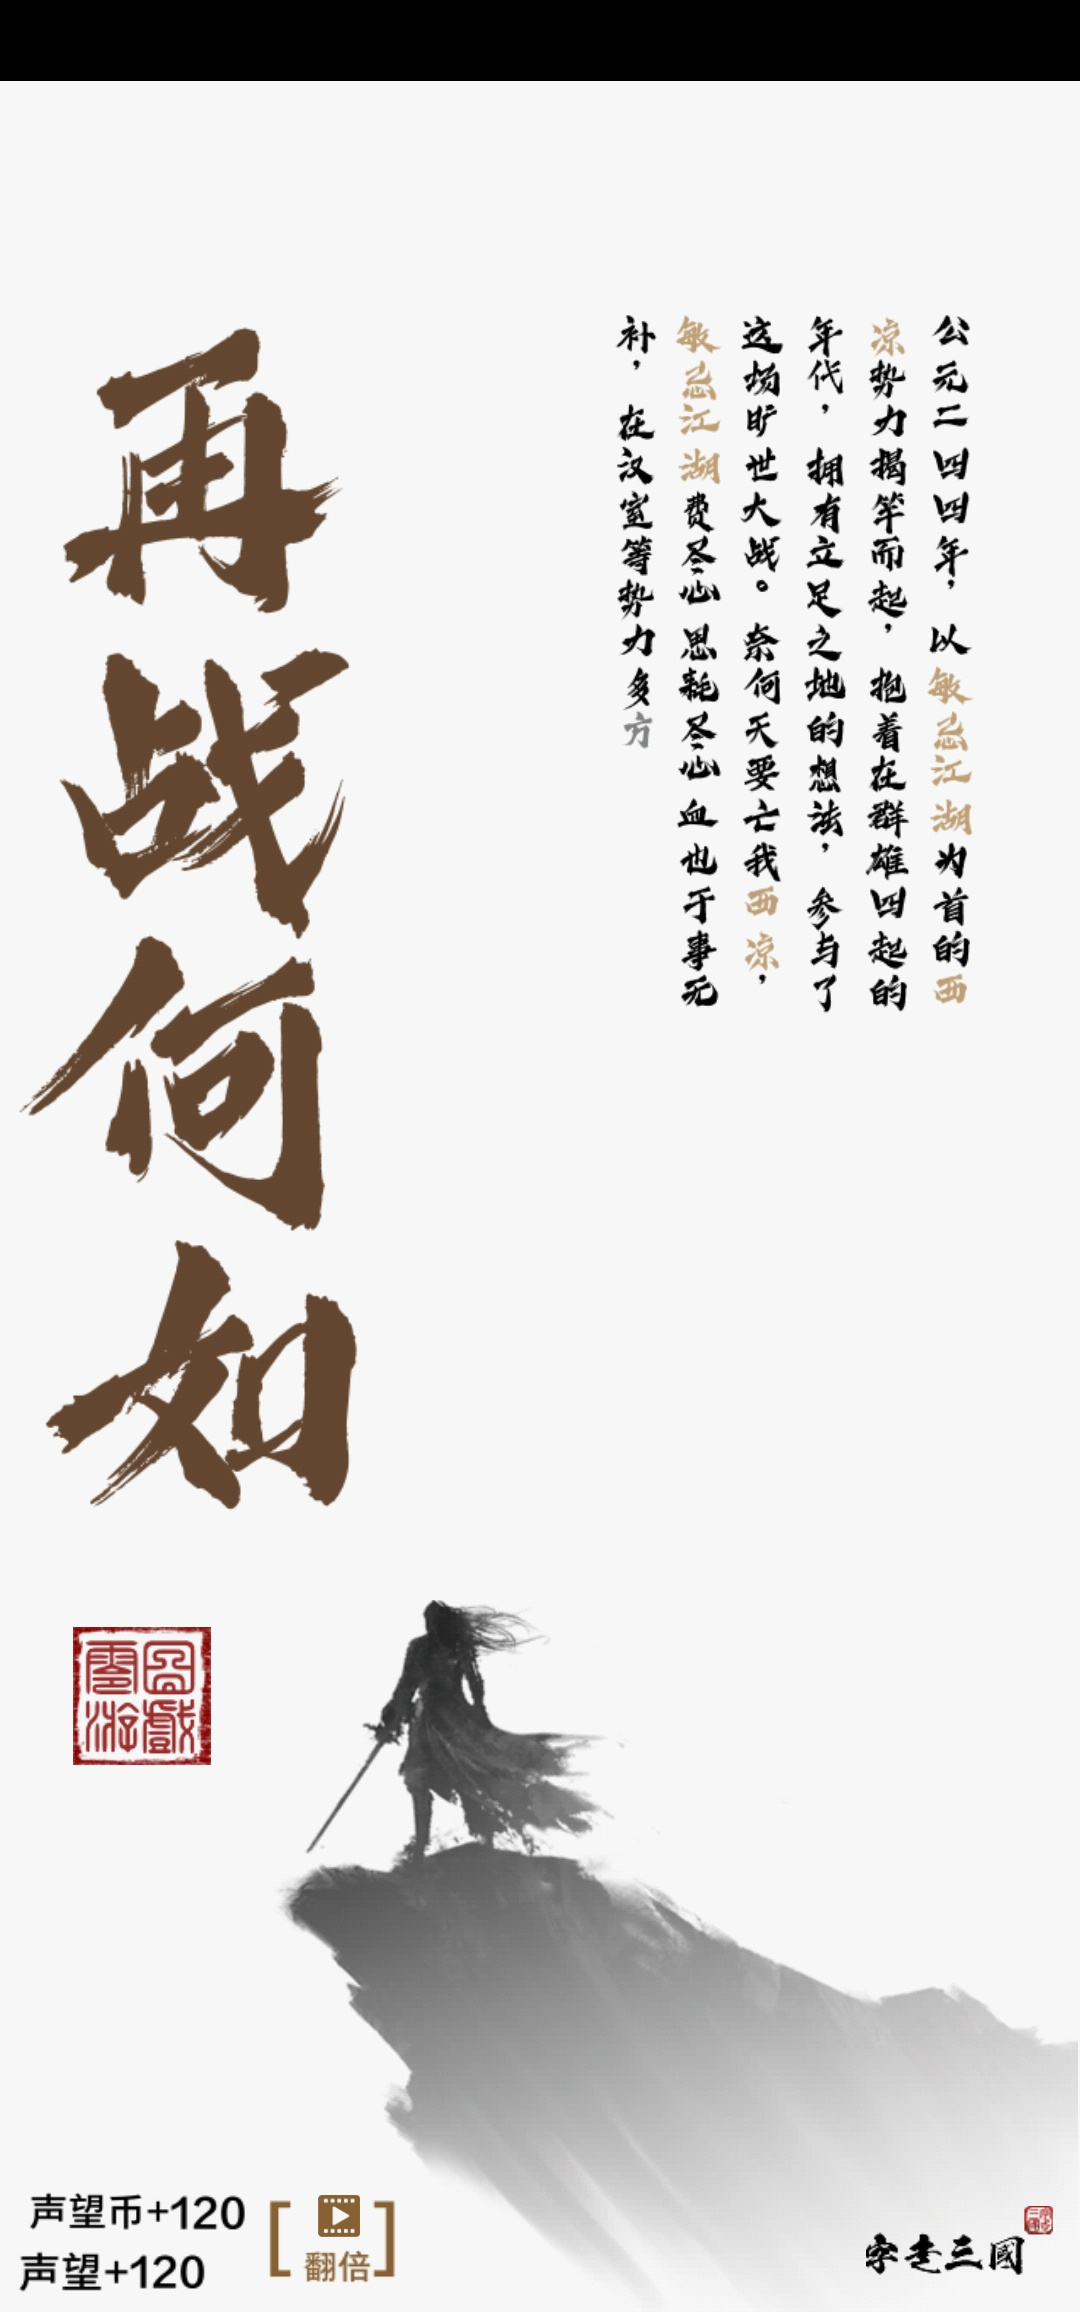 公元二四四年，以敏忌江湖为首的西
凉势力揭竿而起，抱着在群雄四起的
年代，拥有立足之地的想法，参与了
这场旷世大战。奈何天要亡我西凉，
敏忌江湖费尽心思耗尽心血也于事无
补，在汉室等势力多方
再战何如
声望币+120
声望+120
翻倍
字走三國